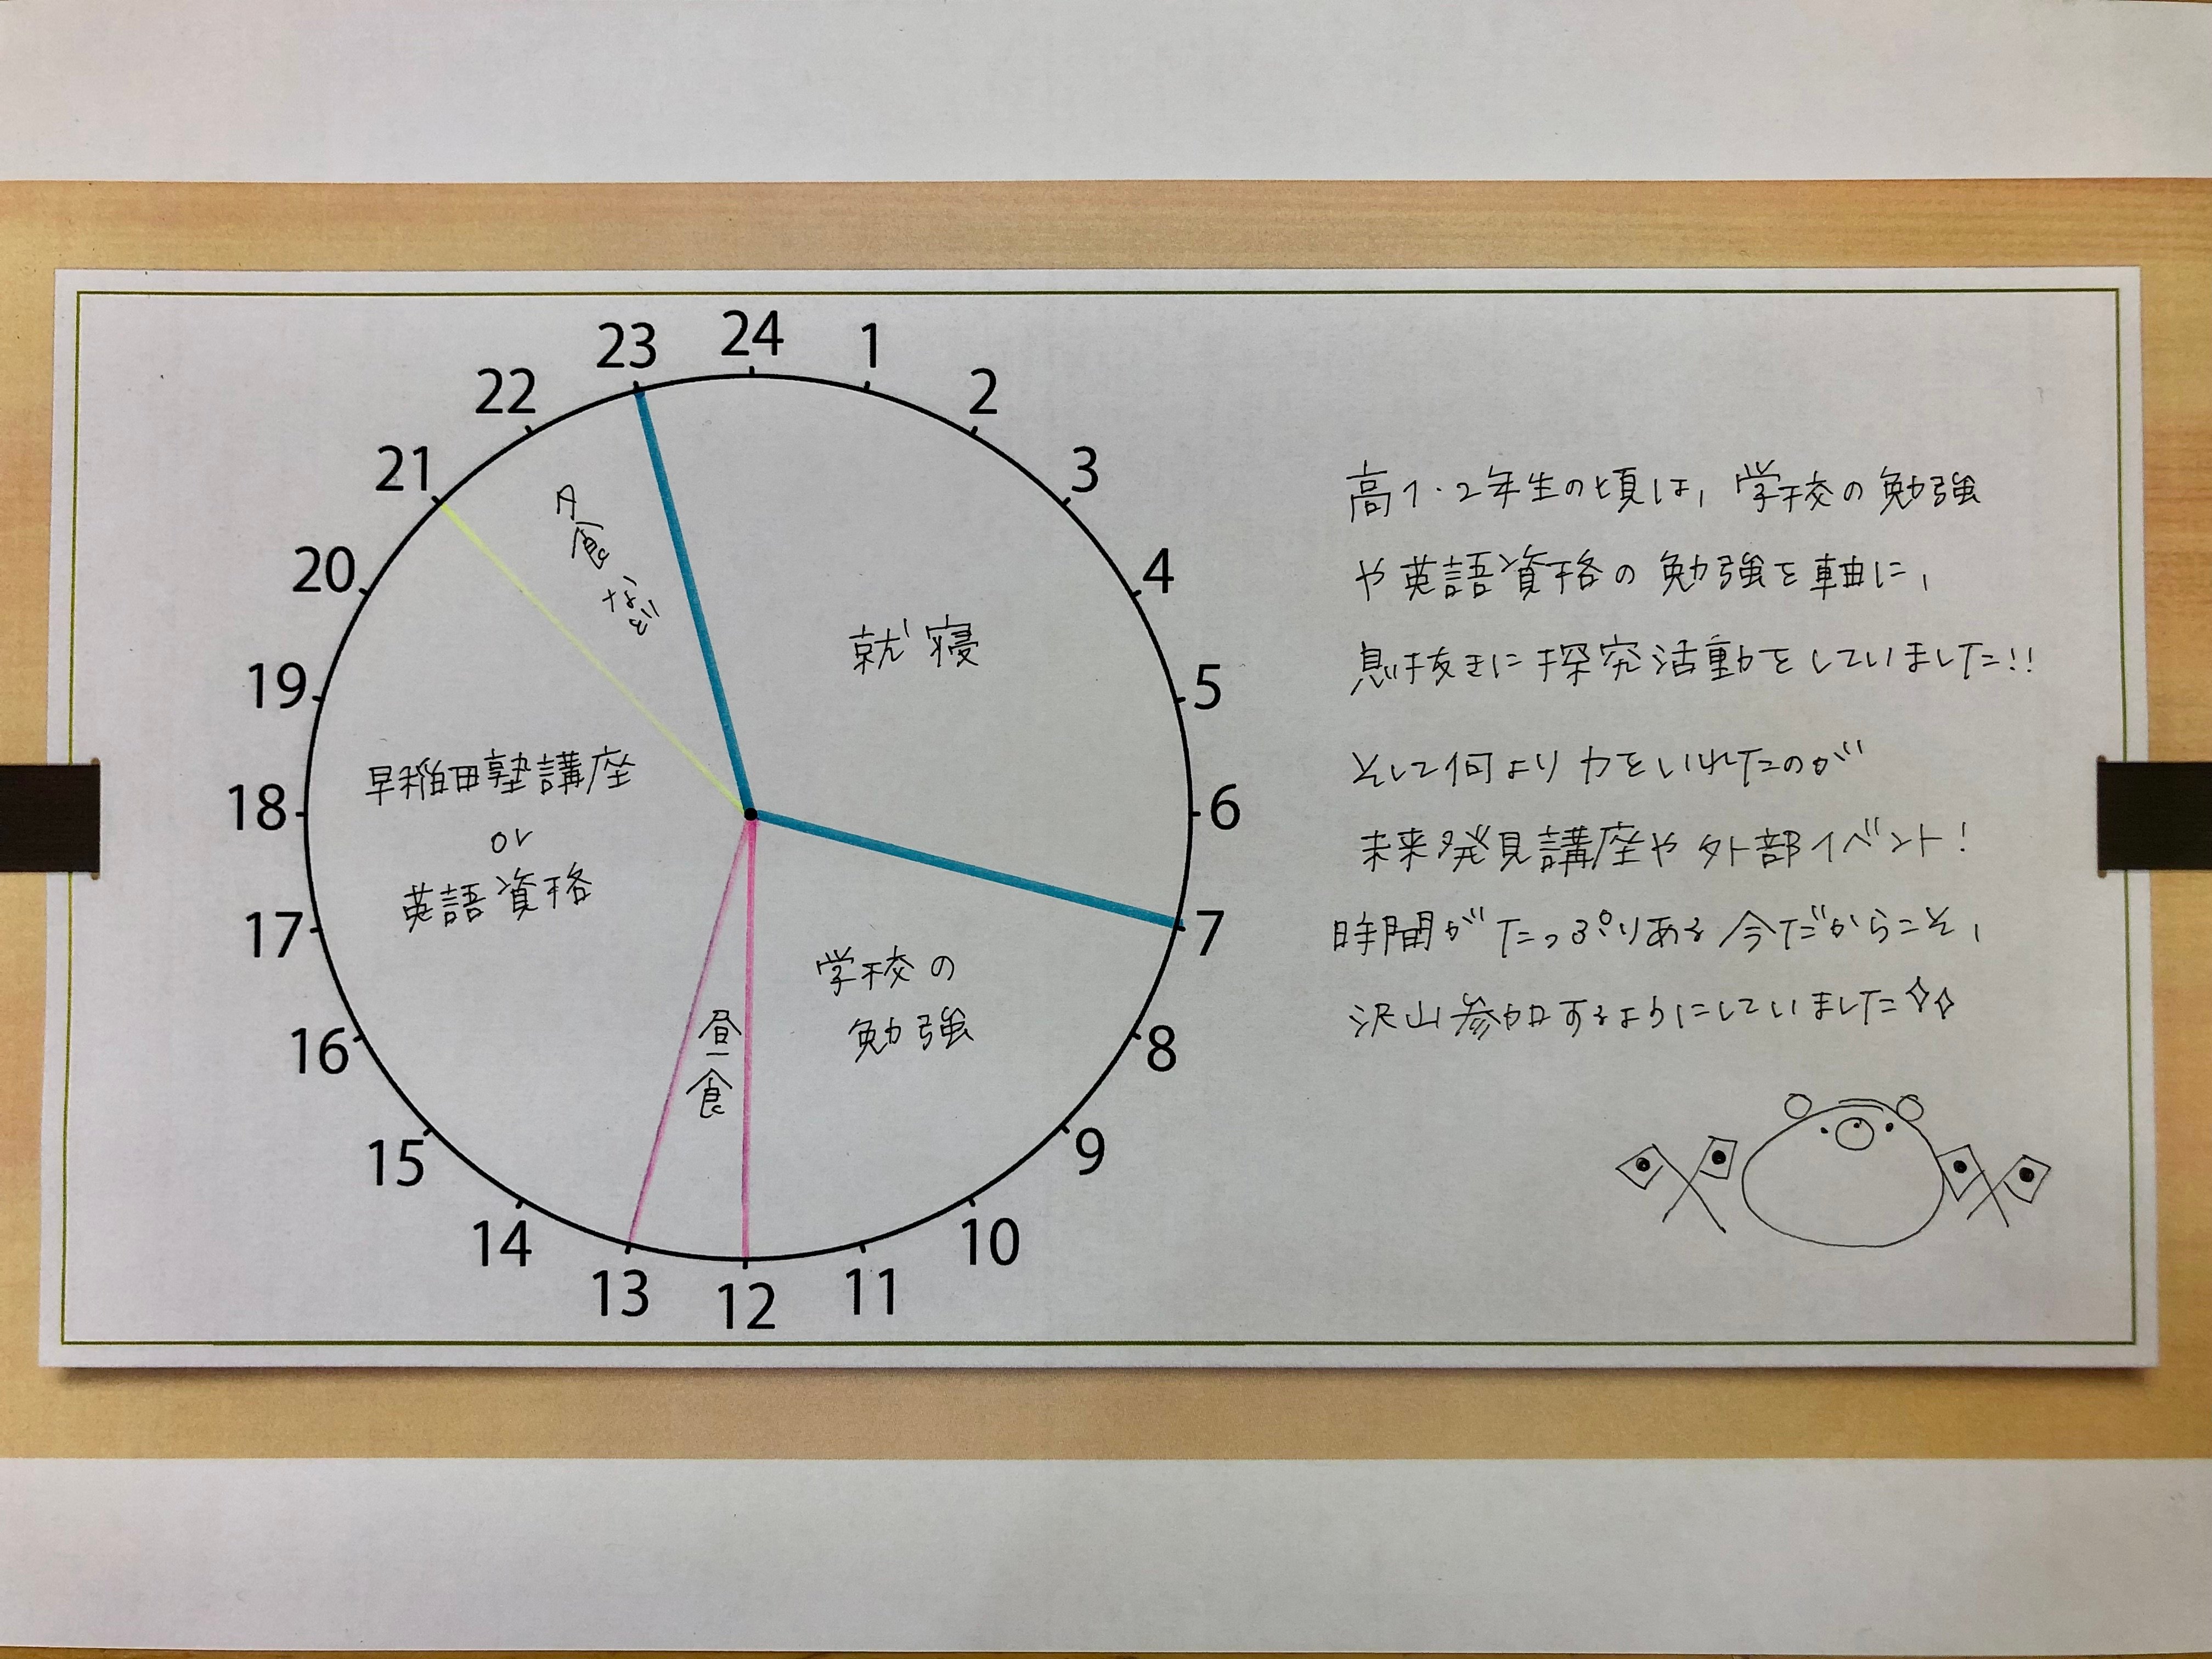 24
1
2
3
4
5
6
7
8
9
10
11
12
13
14
15
16
17
18
19
20
21
22
23
就寝
学校の
勉強
昼食
早稲田塾講座
or
英語資格
夕食など
高1・2年生の頃は、学校の勉強
や英語資格の勉強を軸に、
息抜きに探究活動をしていました!!
そして何より力をいれたのが
未来発見講座や外部イベント!
時間がたっぷりある今だからこそ、
沢山参加するようにしていました✧✧